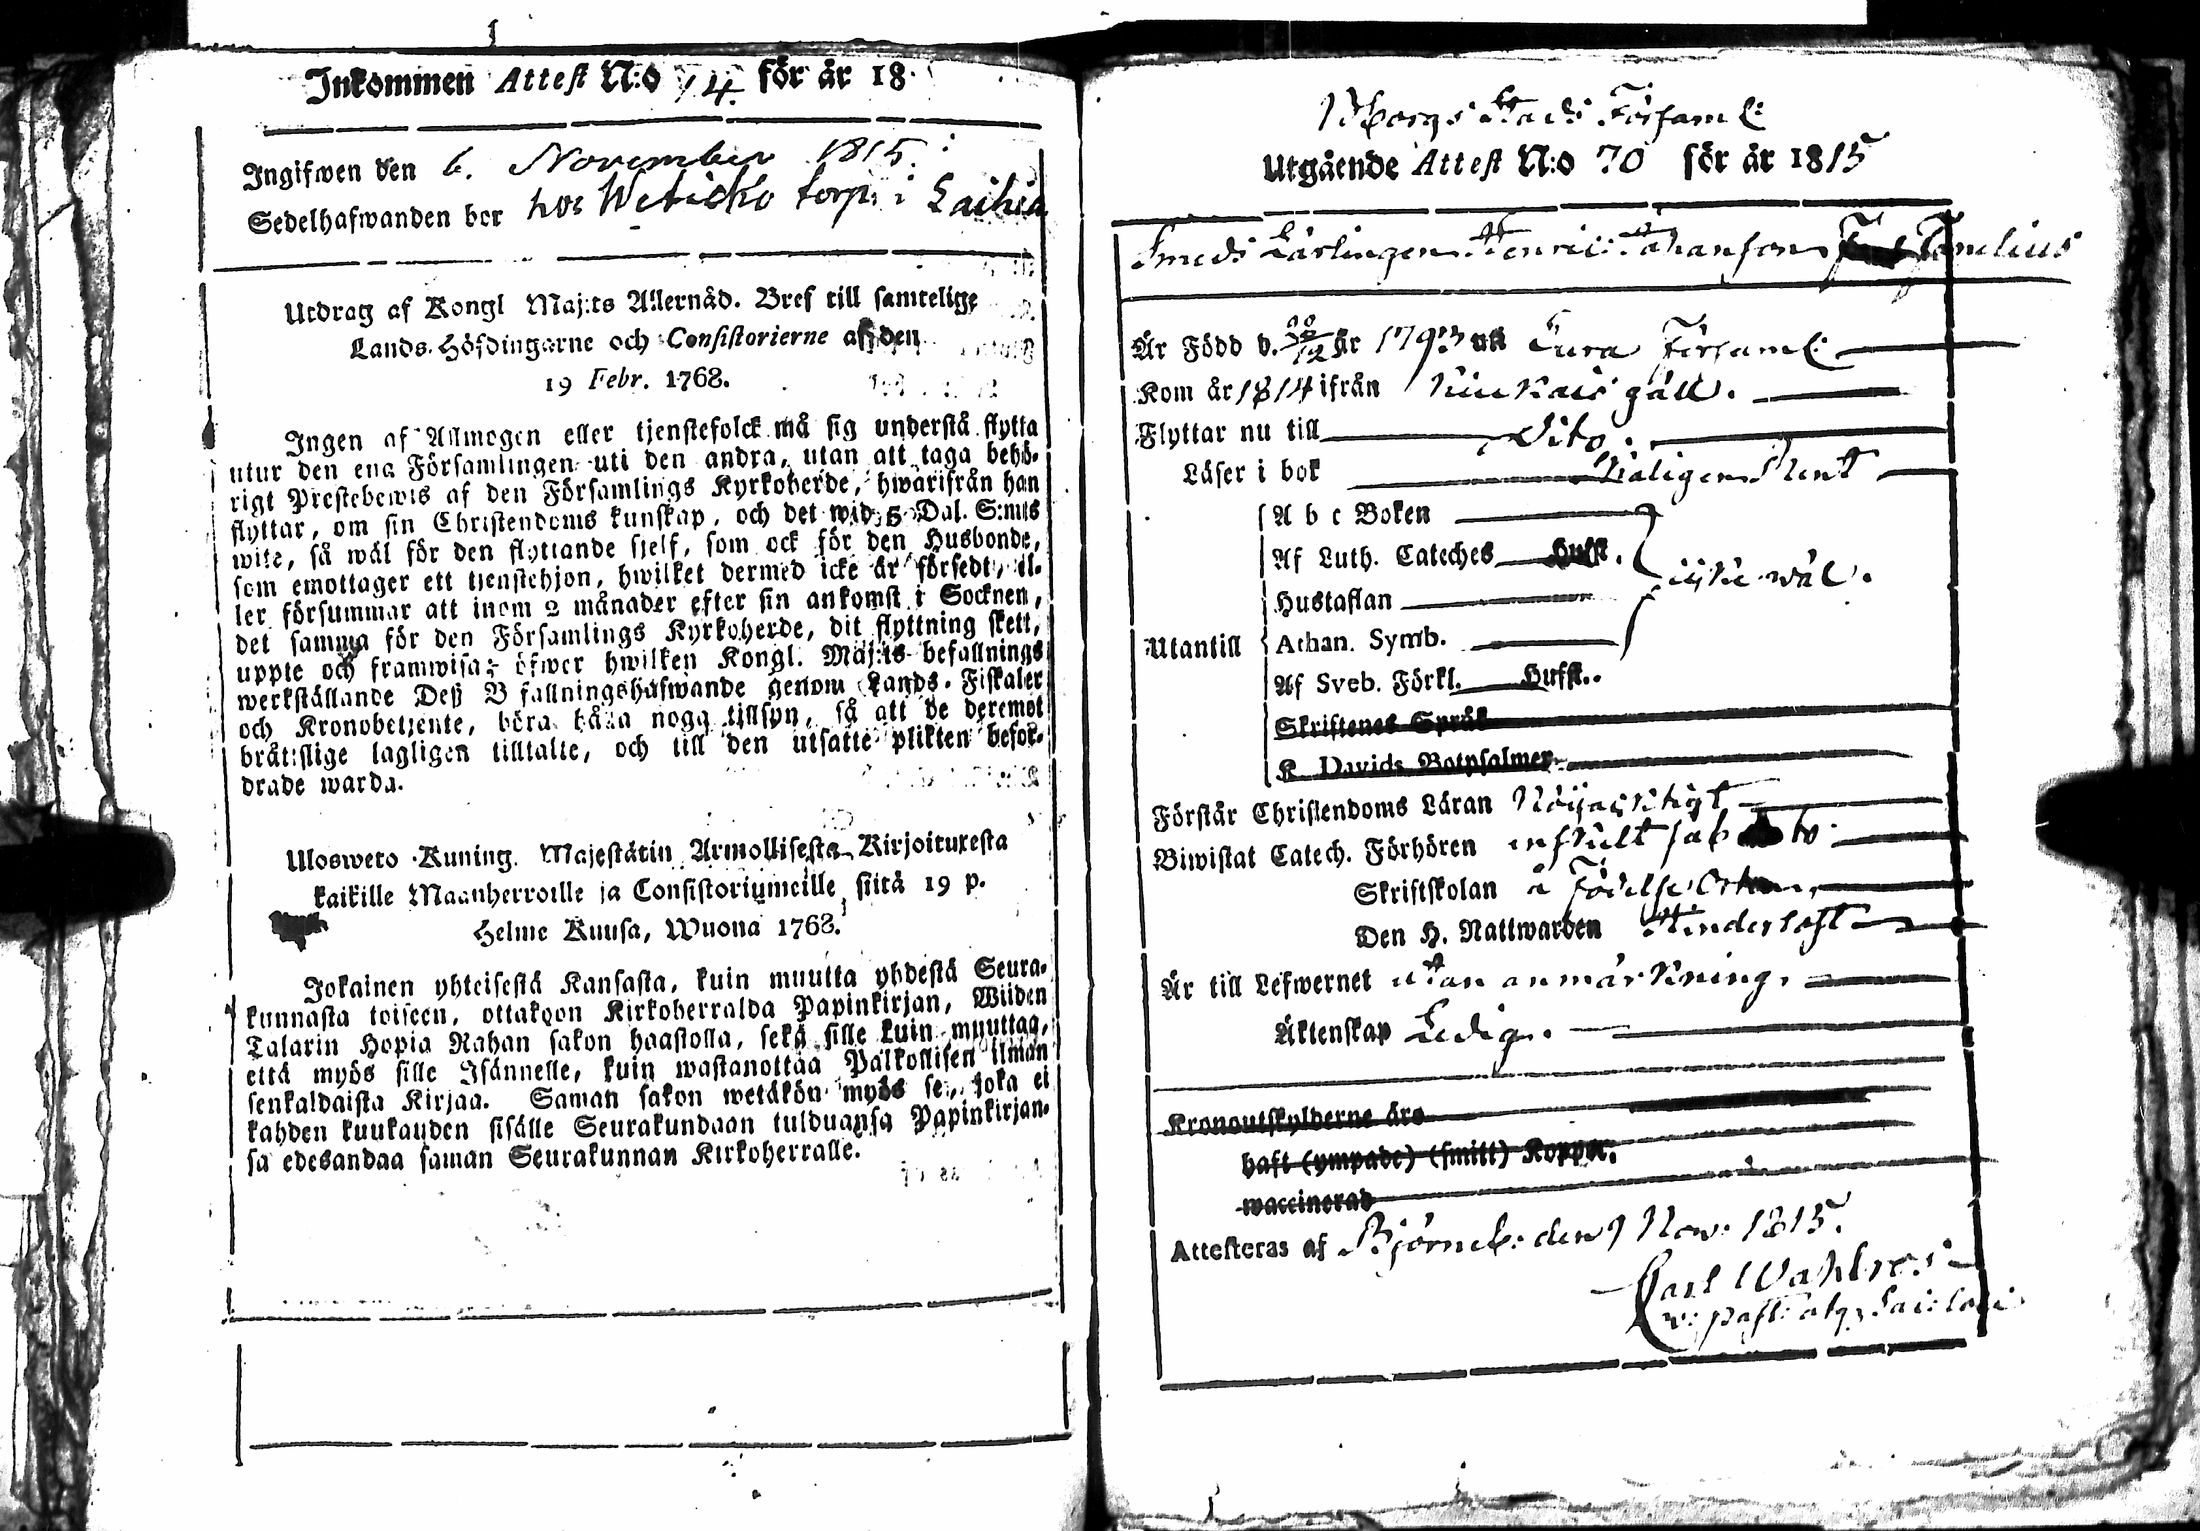 Inkommen Attest N:o 14. för år 18
Ingifwen den 6. November 1815.
Sedelhafwanden bor hos Wetickò torp i Laihia
Utdrag af Kongl Maj:ts Allernåd. Bref till samtelige
Lands-Höfdingarne och Consistorierne af den
19 Febr. 1768.
Ingen af Allmogen eller tjenstefolck må sig understå flytta
utur den ena Församlingen uti den andra, utan att taga behö-
rigt Prestebewis af den Församlings Kyrkoherde, hwarifrån han
flyttar, om sin Christendoms kunskap, och det wid 5 Dal. S:mts
wite, så wäl för den flyttande sjelf, som ock för den Husbonde,
som emottager ett tjenstehjon, hwilket dermed icke är försedt, el-
ler försummar att inom 2 månader efter sin ankomst i Socknen,
det samma för den Församlings Kyrkoherde, dit flyttning skett,
uppte och framwisa; öfwer hwilken Kongl. Maj:ts befallnings
werkställande Deß Befallningshafwande genom Lands-Fiskaler
och Kronobetjente, böra hålla noga tillsyn, så att de deremot
bråtslige lagligen tilltalte, och till den utsatte plikten befor-
drade warda.
Ulosweto Kuning. Majestätin Armollisesta Kirjoituxesta
kaikille Maanherroille ja Consistoriumeille, siitä 19 p.
Helme Kuusa, Wuona 1768.
Jokainen yhteisestä Kansasta, kuin muutta yhdestä Seura-
kunnasta toiseen, ottakoon Kirkoherralda Papinkirjan, Wiiden
Talarin Hopia Rahan sakon haastolla, sekä sille kuin muuttaa,
että myös sille Isännelle, kuin wastanottaa Palkollisen ilman
senkaldaista Kirjaa. Saman sakon wetäkön myös se, joka ei
kahden kuukauden sisälle Seurakundaan tulduansa Papinkirjan-
sa edesandaa saman Seurakunnan Kirkoherralle.
Stads Församl:
Utgående Attest N:o 70 för år 1815
Smeds Lärlingen Henric Johansson Famelius
Är Född d. år 1793 uti Eura Församl:
Kom år 1814 ifrån Kiukais gäll.
Flyttar nu till Dito.
Läser i bok
A b c Boken
Af Luth. Cateches Hufst.
Hustaflan
Utantill Athan. Symb.
Af Sveb. Förkl. Hufst.
Skriftenes Språk
K. Davids Botpsalmer
Förstår Christendoms Läran Nöijacktigt
Biwistat Catech. Förhören
Skriftskolan å Födelse Orten
Den H. Nattwarden Hinderlöst
Är till Lefwernet utan anmärkning.
Äktenskap Ledig.
Kronoutskylderne äro
haft (ympade) (smitt) Koppor.
waccinerad
Attesteras af Björneb: den 1 Nov: 1815.
Carl Wahlroos